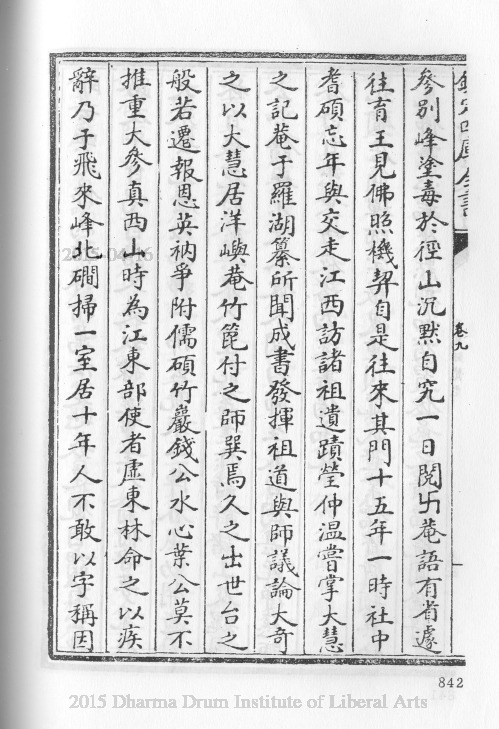 欽定四庫全書
卷九
參別峰塗毒於徑山沉默自究一日閱卐菴語有省遽
往育王見佛照機契自是往來其門十五年一時社中
耆碩忘年與交走江西訪諸祖遺蹟瑩仲温嘗掌大慧
之記菴于羅湖纂所聞成書發揮祖道與師議論大奇
之以大慧居洋嶼菴竹篦付之師巽焉久之出世台之
般若遷報恩英衲爭附儒碩竹巖錢公水心葉公莫不
推重大參真西山時為江東部使者虛東林命之以疾
辭乃于飛來峰北磵掃一室居十年人不敢以字稱因
842
2015 Dharma Drum Institute of Liberal Arts